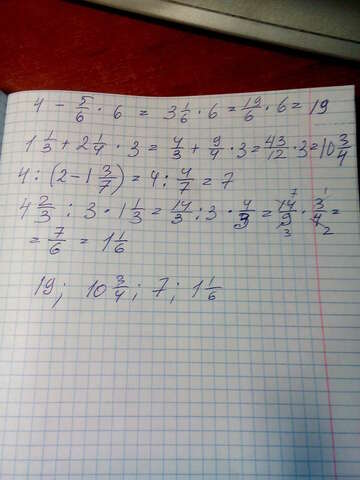 4 - 5/6 · 6 = 3 1/6 · 6 = 19/6 · 6 = 19
1 1/3 + 2 1/4 · 3 = 4/3 + 9/4 · 3 = 43/12 · 3 = 10 3/4
4 : (2 - 1 3/7) = 4 : 4/7 = 7
4 2/3 : 3 · 1 1/3 = 14/3 : 3 · 4/3 = 14/9 · 3/4 =
= 7/6 = 1 1/6
19; 10 3/4; 7; 1 1/6